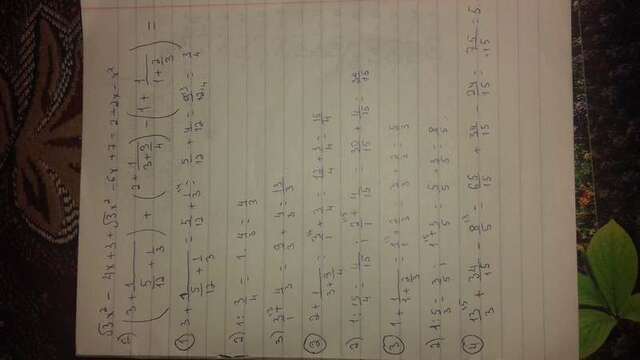 √3x² - 4x + 3 + √3x² - 6x + 7 = 2 + 2x - x²
2) (3 + 1/(5/12 + 1/3)) + (2 + 1/(3 + 3/4)) - (1 + 1/(1 + 2/3)) =
① 3 + 1/(5/12 + 1/3) = 5/12 + 1/3 = 5/12 + 4/12 = 9/12 = 3/4
2) 1 : 3/4 = 1 · 4/3 = 4/3
3) 3/1 + 4/3 = 9/3 + 4/3 = 13/3
② 2 + 1/(3 + 3/4) = 3/1 + 3/4 = 12/4 + 3/4 = 15/4
2) 1 : 15/4 = 4/15 ; 2/1 + 4/15 = 30/15 + 4/15 = 34/15
③ 1 + 1/(1 + 2/3) = 1/1 + 2/3 = 3/3 + 2/3 = 5/3
2) 1 : 5/3 = 3/5 ; 1 + 3/5 = 5/5 + 3/5 = 8/5
④ 13/3 + 34/15 - 8/5 = 65/15 + 34/15 - 24/15 = 75/15 = 5